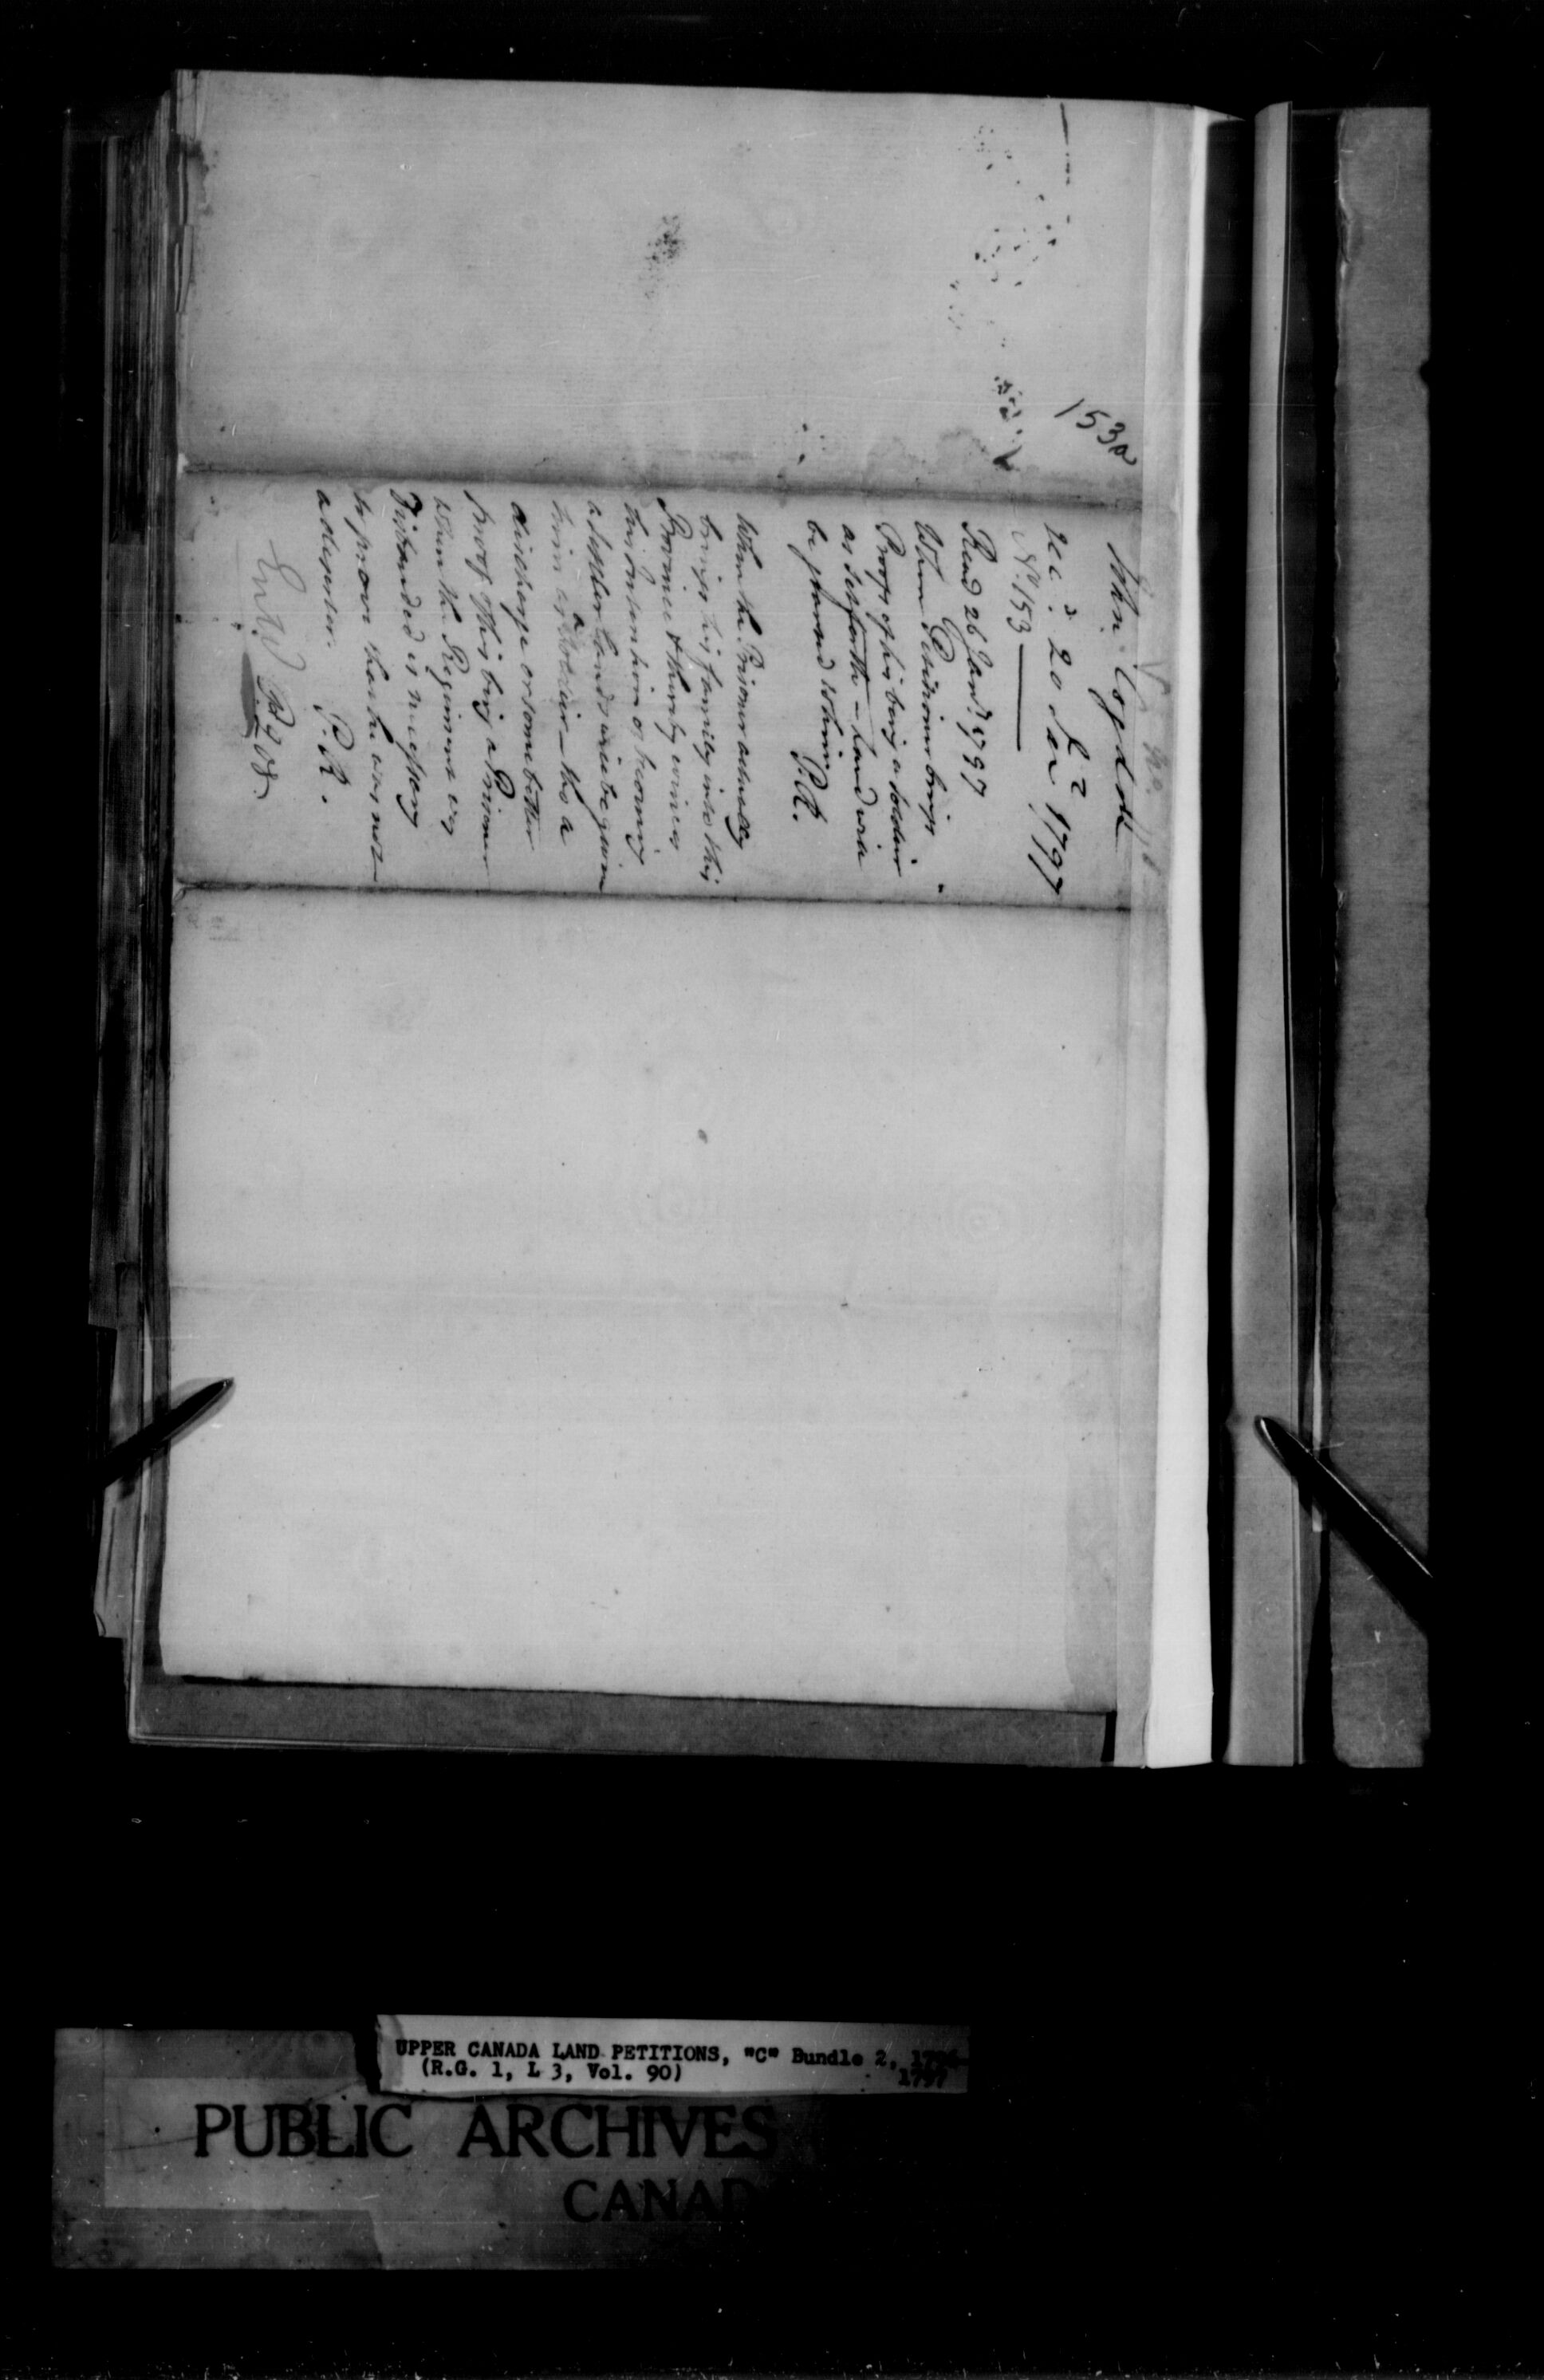 153a
John Cogdell
Rec.d 20 Jan 1797
No. 153
Read 26 Jany. 1797
When Petitioner brings
Proof of his being a Soldier
as set forth - Land will
be granted to him
P.R.
When the Prisoner actually
brings his family into this
Province & thereby evinces
his intention of becoming
a Settler lands will be given
him as a Soldier - tho a
discharge or some better
proof of his being a Prisoner
when the Regiment was
Disbanded is necessary
to prove that he was not
a deserter.
P.R.
Ent.d
UPPER CANADA LAND PETITIONS, "C" Bundle 2, 1796-
1797
(R.G. 1, L 3, Vol. 90)
PUBLIC ARCHIVES
CANAD